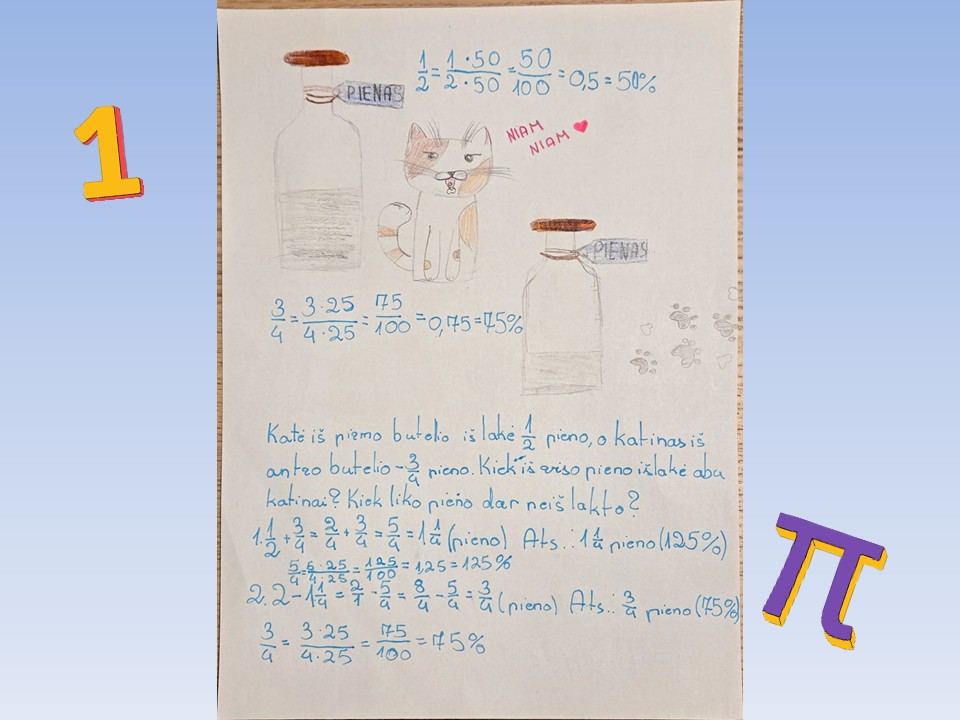 1
PIENAS
1/2 = 1·50/2·50 = 50/100 = 0,5 = 50%
NIAM
NIAM
PIENAS
3/4 = 3·25/4·25 = 75/100 = 0,75 = 75%
Katė iš pirmo butelio išlakė 1/2 pieno, o katinas iš
antro butelio - 3/4 pieno. Kiek iš viso pieno išlakė abu
katinai? Kiek liko pieno dar neišlakto?
1. 1/2 + 3/4 = 2/4 + 3/4 = 5/4 = 1 1/4 (pieno) Ats.: 1 1/4 pieno (125%)
5/4 = 5·25/4·25 = 125/100 = 1,25 = 125%
2. 2 - 1 1/4 = 2/1 - 5/4 = 8/4 - 5/4 = 3/4 (pieno) Ats.: 3/4 pieno (75%)
3/4 = 3·25/4·25 = 75/100 = 75%
π